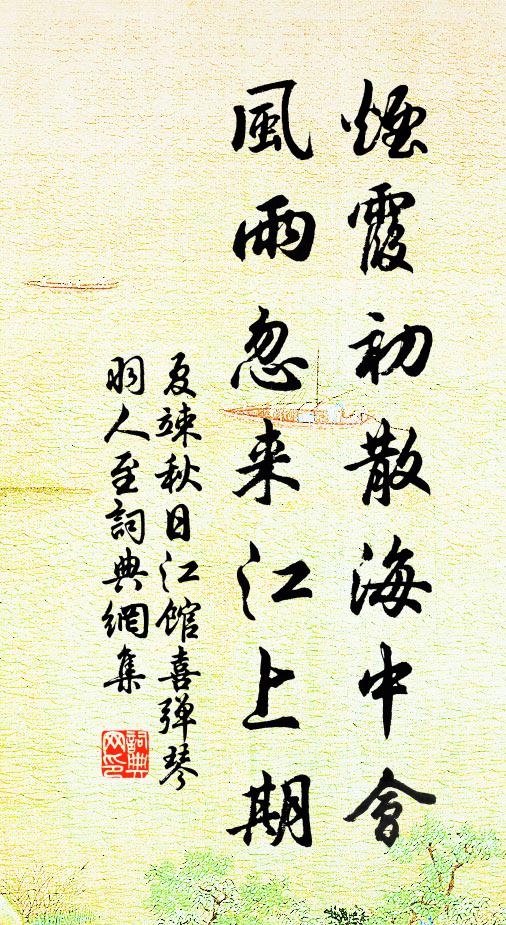 煙霞初散海中會
風雨忽来江上期
夏竦秋日江馆喜弹琴
羽人至詞典網集
詞典
网印